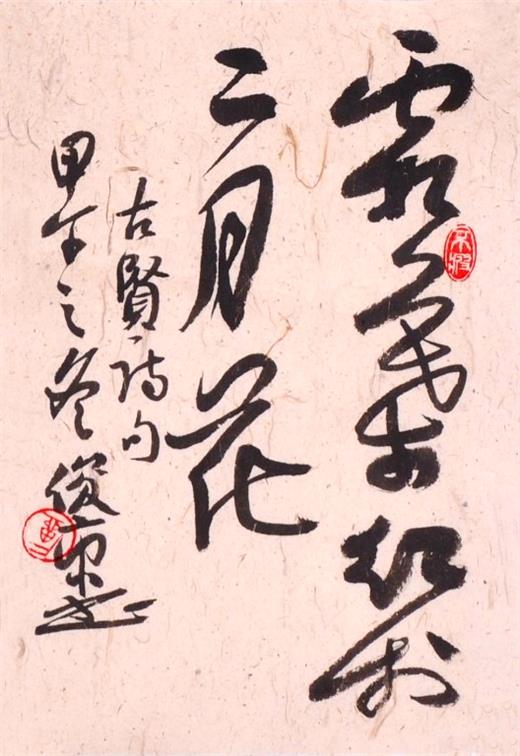 霜葉紅於
二月花
古賢詩句
甲午之冬俊